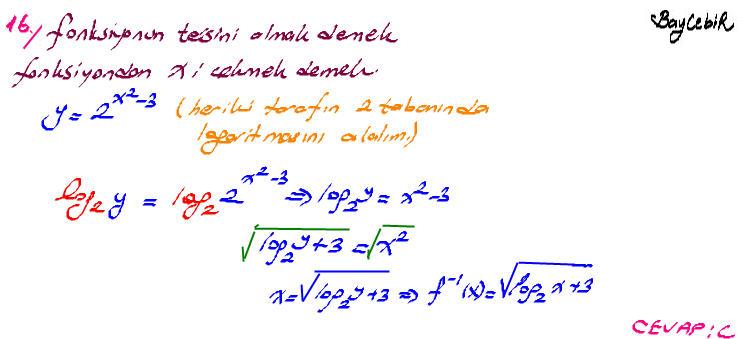 16.) fonksiyonun tersini almak demek
BayCebiR
fonksiyondan x i çekmek demek.
y = 2^{x²-3} (her iki tarafın 2 tabanında
logaritmasını alalım.)
log₂ y = log₂ 2^{x²-3} ⇒ log₂ y = x²-3
√(log₂ y+3) = √(x²)
x = √(log₂ y+3) ⇒ f⁻¹(x) = √(log₂ x+3)
CEVAP: C